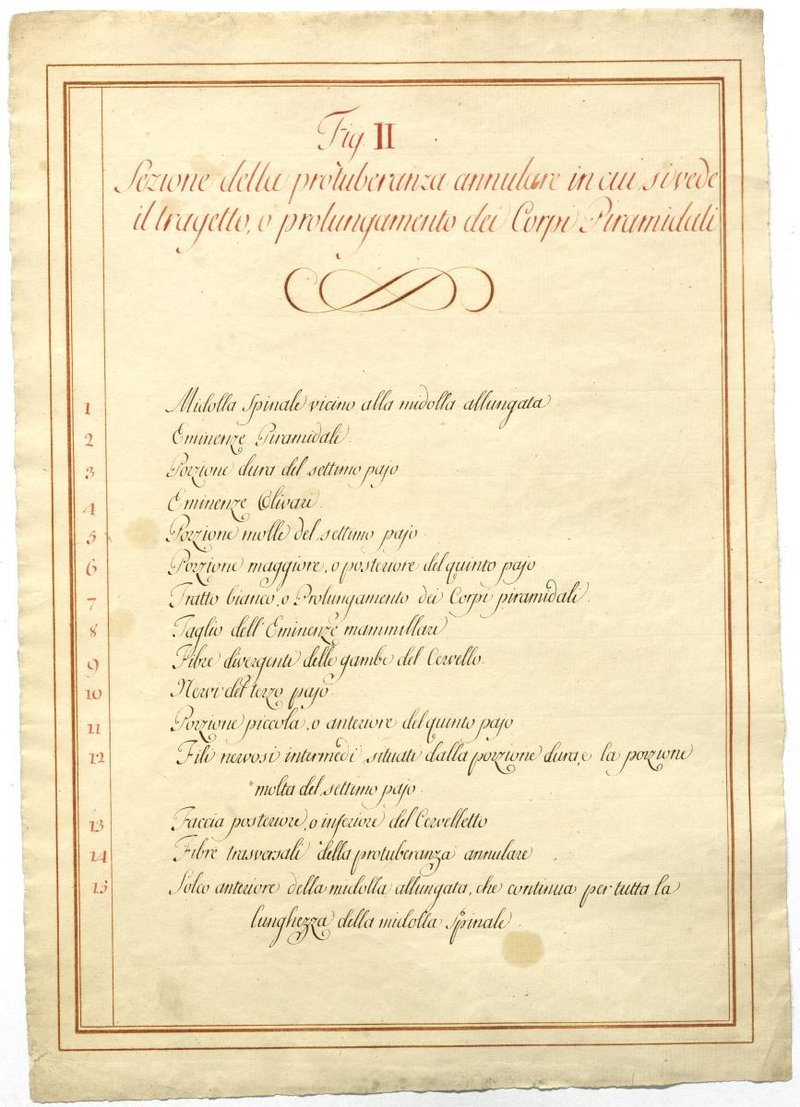 Fig II
Sezione della protuberanza annulare in cui si vede
il tragetto, o prolungamento dei Corpi Piramidali
1 Midolla Spinale vicino alla midolla allungata
2 Eminenze Piramidali.
3 Porzione dura del settimo pajo
4 Eminenze Olivari.
5 Porzione molle del settimo pajo.
6 Porzione maggiore, o posteriore del quinto pajo.
7 Tratto bianco, o Prolungamento dei Corpi piramidali.
8 Taglio dell'Eminenze mammillari
9 Fibre divergenti delle gambe del Cervello.
10 Nervi del terzo pajo.
11 Porzione piccola, o anteriore del quinto pajo.
12 Fili nervosi intermedi situati dalla porzione dura, e la porzione
molta del settimo pajo.
13 Faccia posteriore, o inferiore del Cervelletto
14 Fibre trasversali della protuberanza annulare
15 Solco anteriore della midolla allungata, che continua per tutta la
lunghezza della midolla Spinale.